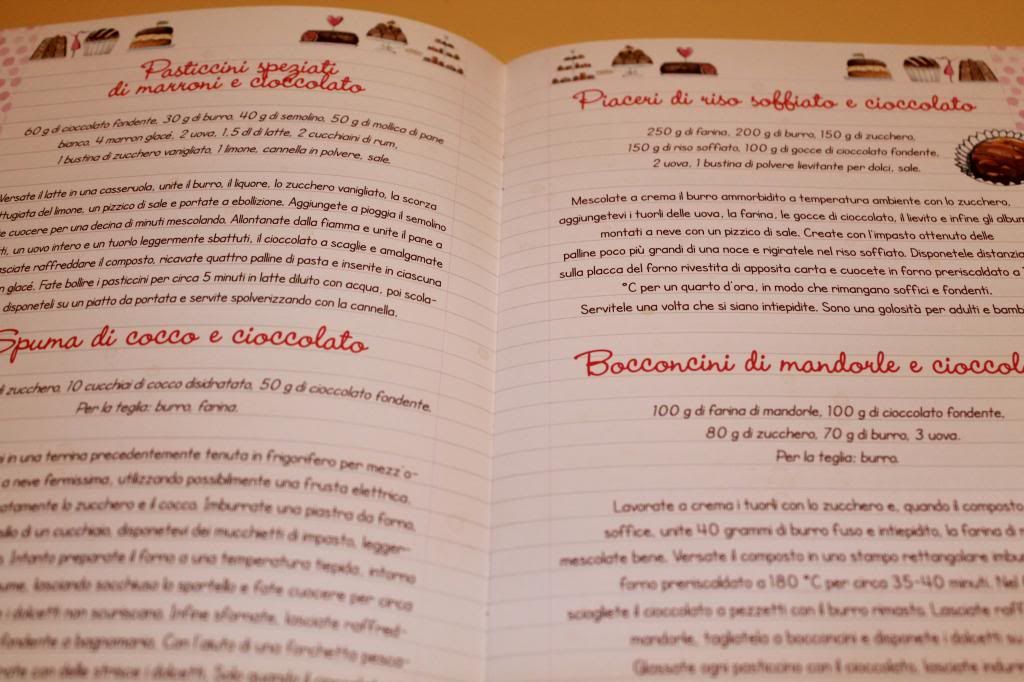 Pasticcini speziati
di marroni e cioccolato
60 g di cioccolato fondente, 30 g di burro, 40 g di semolino, 50 g di mollica di pane
bianco, 4 marron glacé, 2 uova, 1,5 dl di latte, 2 cucchiaini di rum,
1 bustina di zucchero vanigliato, 1 limone, cannella in polvere, sale.
Versate il latte in una casseruola, unite il burro, il liquore, lo zucchero vanigliato, la scorza
ttugiata del limone, un pizzico di sale e portate a ebollizione. Aggiungete a pioggia il semolino
e cuocere per una decina di minuti mescolando. Allontanate dalla fiamma e unite il pane a
ti, un uovo intero e un tuorlo leggermente sbattuti, il cioccolato a scaglie e amalgamate
sciate raffreddare il composto, ricavate quattro palline di pasta e inserite in ciascuna
n glacé. Fate bollire i pasticcini per circa 5 minuti in latte diluito con acqua, poi scola-
disponeteli su un piatto da portata e servite spolverizzando con la cannella.
Spuma di cocco e cioccolato
di zucchero, 10 cucchiai di cocco disidratato, 50 g di cioccolato fondente.
Per la teglia: burro, farina.
i in una terrina precedentemente tenuta in frigorifero per mezz'o-
a neve fermissima, utilizzando possibilmente una frusta elettrica.
atamente lo zucchero e il cocco. Imburrate una piastra da forno,
di un cucchiaio, disponetevi dei mucchietti di impasto, legger-
Intanto preparate il forno a una temperatura tiepida, intorno
lasciando socchiuso lo sportello e fate cuocere per circa
i dolcetti non scuriscano. Infine sfornate, lasciate raffred-
fondente a bagnomaria. Con l'aiuto di una forchetta
con delle strisce i dolcetti. Solo quando il
Piaceri di riso soffiato e cioccolato
250 g di farina, 200 g di burro, 150 g di zucchero,
150 g di riso soffiato, 100 g di gocce di cioccolato fondente,
2 uova, 1 bustina di polvere lievitante per dolci, sale.
Mescolate a crema il burro ammorbidito a temperatura ambiente con lo zucchero,
aggiungetevi i tuorli delle uova, la farina, le gocce di cioccolato, il lievito e infine gli albu
montati a neve con un pizzico di sale. Create con l'impasto ottenuto delle
palline poco più grandi di una noce e rigiratele nel riso soffiato. Disponetele distanzia
sulla placca del forno rivestita di apposita carta e cuocete in forno preriscaldato a
°C per un quarto d'ora, in modo che rimangano soffici e fondenti.
Servitele una volta che si siano intiepidite. Sono una golosità per adulti e bamb
Bocconcini di mandorle e cioccol
100 g di farina di mandorle, 100 g di cioccolato fondente,
80 g di zucchero, 70 g di burro, 3 uova.
Per la teglia: burro.
Lavorate a crema i tuorli con lo zucchero e, quando il composto
soffice, unite 40 grammi di burro fuso e intiepidito, la farina di
mescolate bene. Versate il composto in uno stampo rettangolare imbu
forno preriscaldato a 180 °C per circa 35-40 minuti. Nel
sciogliete il cioccolato a pezzetti con il burro rimasto. Lasciate raff
mandorle, tagliatelo a bocconcini e disponete i dolcetti su
Glassate ogni pasticcino con il cioccolato, lasciate indur